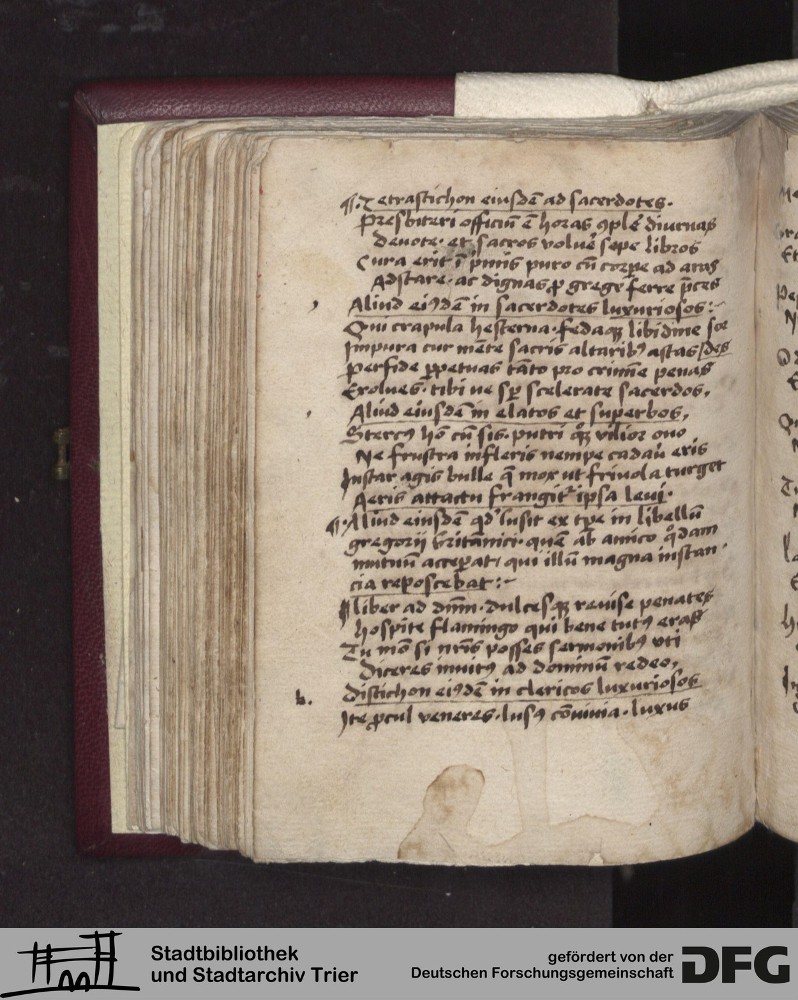 ¶. Tetrastichon eiusdē ad sacerdotes.
Presbiteri officiū ē horas ꝯplē diurnas
Deuote. et sacros voluē sepe libros
Cura erit ī pmis puro cū corpe ad aras
Adstare. ac dignas ꝓ grege ferre pces
Aliud eiꝰdē in sacerdotes luxuriosos:-
Qui crapula hesterna. fedaqꝫ libidine sor
Impura cur mēte sacris altaribꝰ astas /des
Perfide ꝑpetuas tāto pro crimīe penas
Exolues. tibi ve sꝑ scelerate sacerdos,
Aliud eiusdē in elatos et superbos,
Stercꝰ hō cū sis. putri qꝫ vilior ouo
Ne frustra infleris nempe cadauē eris
Instar agis bulle q̄ mox ut friuola turget
Aeris attactu frangit ipsa leui.
¶. Aliud eiusdē qd lusit ex tꝑe in libellū
gregorij britānici. quē ab amico qdam
mutuū acceperat, qui illū magna instan
cia reposcebat:-
liber ad dnm. dulcesqꝫ reuise penates
hospite flamingo qui bene tutꝰ eras
Tu mō si nris posses sermonibꝰ vti
Diceres inuitꝰ ad dominū redeo,
b. Distichon eiꝰdē in clericos luxuriosos
Ite ꝓcul veneres. lusꝰ cōuiuia. luxus
Stadtbibliothek
und Stadtarchiv Trier
gefördert von der
Deutschen Forschungsgemeinschaft
DFG